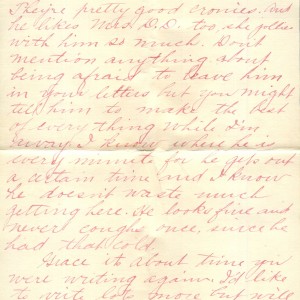 They're pretty good cronies. And
he likes Mrs. D.D. too, she jollies
with him so much. Don't
mention anything about
being afraid to leave him
in your letters but you might
tell him to make the best
of everything while I'm
away. I know where he is
every minute for he gets out
a certain time and I know
he doesn't waste much
getting here. He looks fine and
never coughs once, since he
had that cold.
Grace it about time you
were writing again. I'd like
to write lots more but will